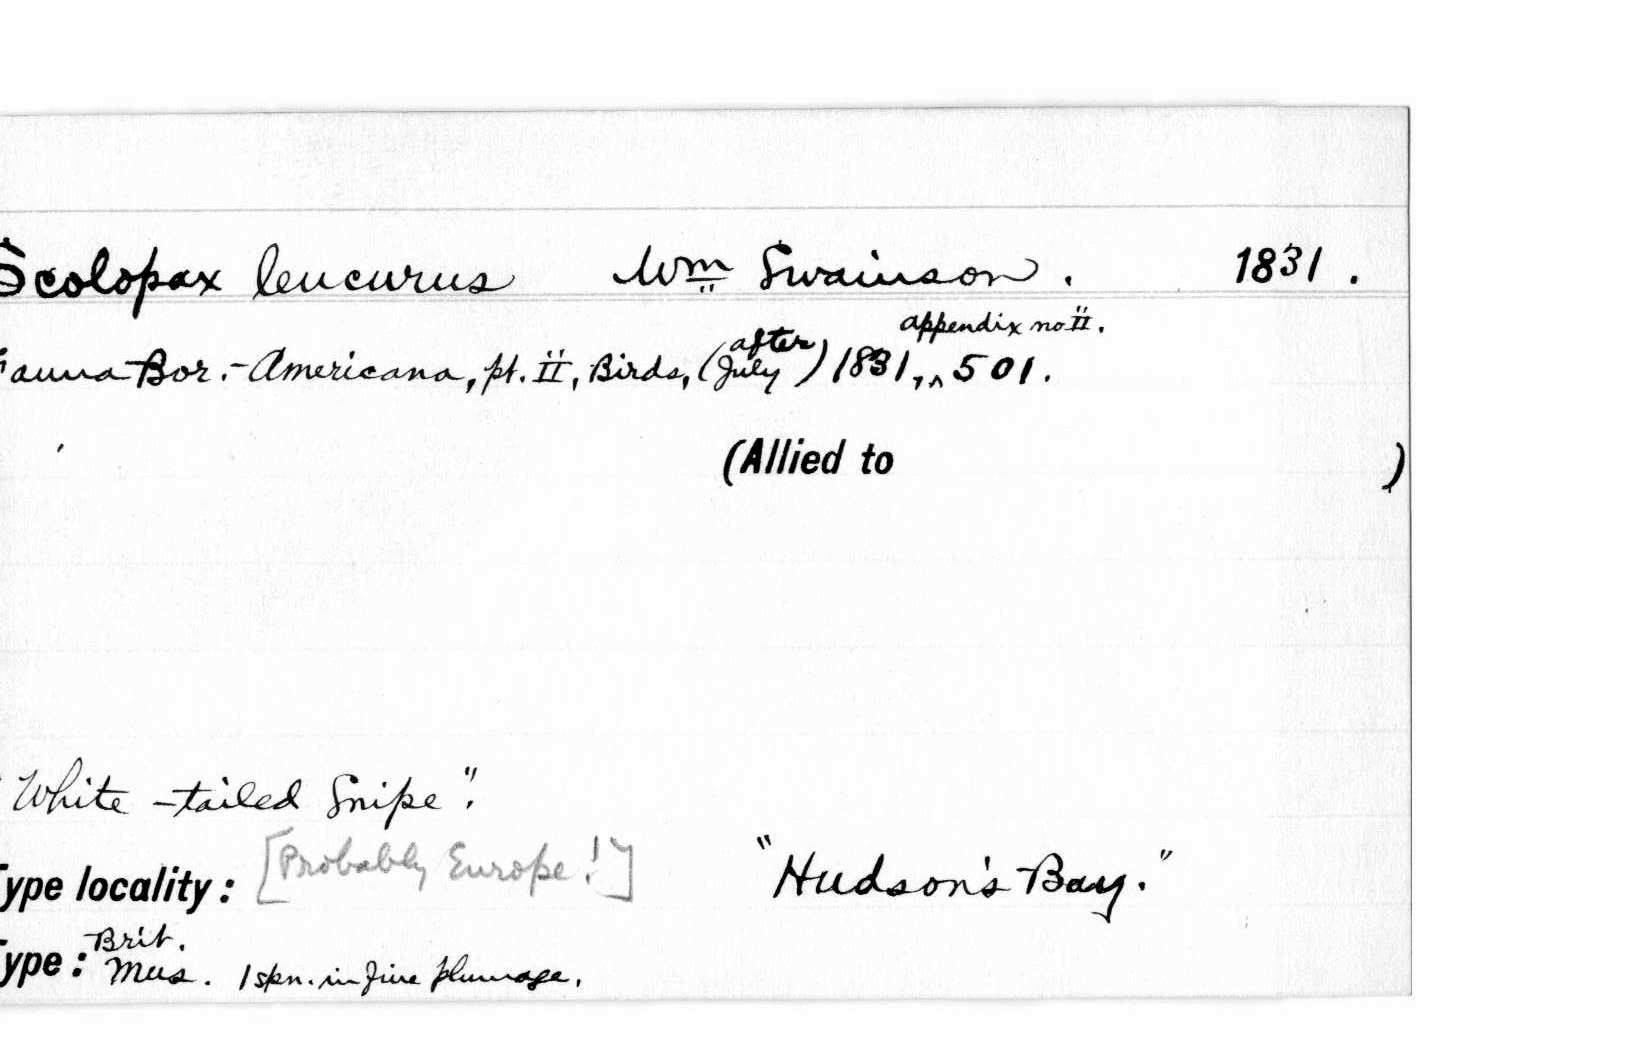 Scolopax leucurus Wm Swainson. 1831.
appendix no II.
Fauna Bor.-Americana, pt. II, Birds, (after July) 1831, ^ 501.
(Allied to )
"White-tailed Snipe".
Type locality: [Probably Europe!] "Hudson's Bay."
Type: Brit. Mus. 1 spn. in fine plumage.